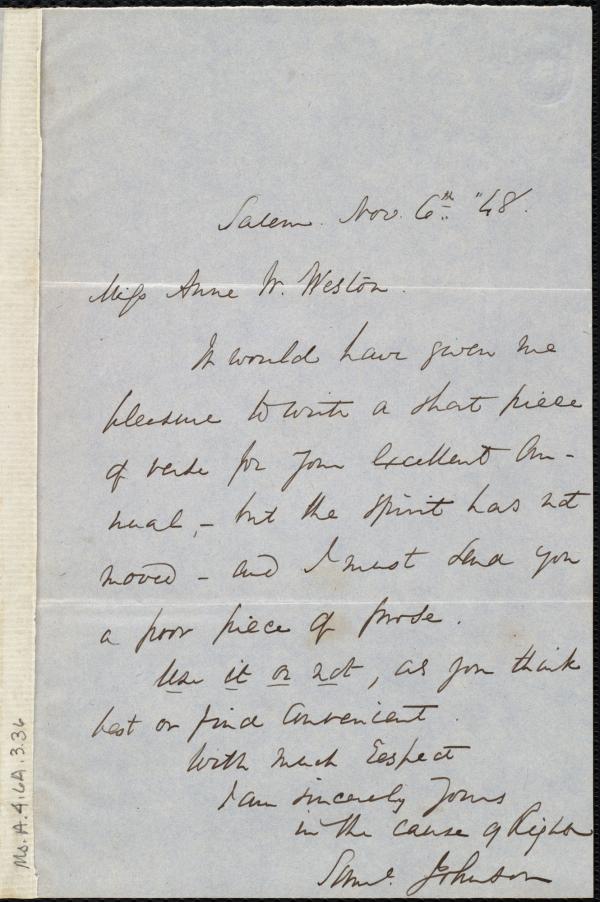 Salem. Nov. 6th. "48.
Miss Anne W. Weston.
It would have given me
pleasure to write a short piece
of verse for your excellent An-
nual, - but the spirit has not
moved - and I must send you
a poor piece of prose.
Use it or not, as you think
best or find convenient.
With much respect
I am sincerely yours
in the cause of Right
Saml. Johnson
Ms. A. 9.6A.3.36